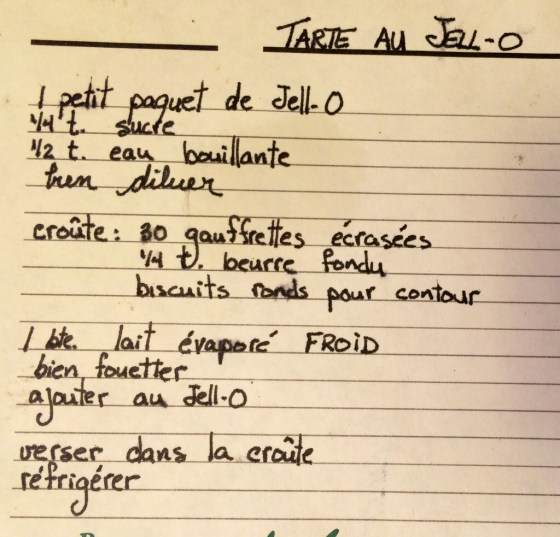 TARTE AU JELL-O
1 petit paquet de Jell-O
1/4 t. sucre
1/2 t. eau bouillante
bien diluer
croûte: 30 gauffrettes écrasées
1/4 t. beurre fondu
biscuits ronds pour contour
1 bte. lait évaporé FROID
bien fouetter
ajouter au Jell-O
verser dans la croûte
réfrigérer